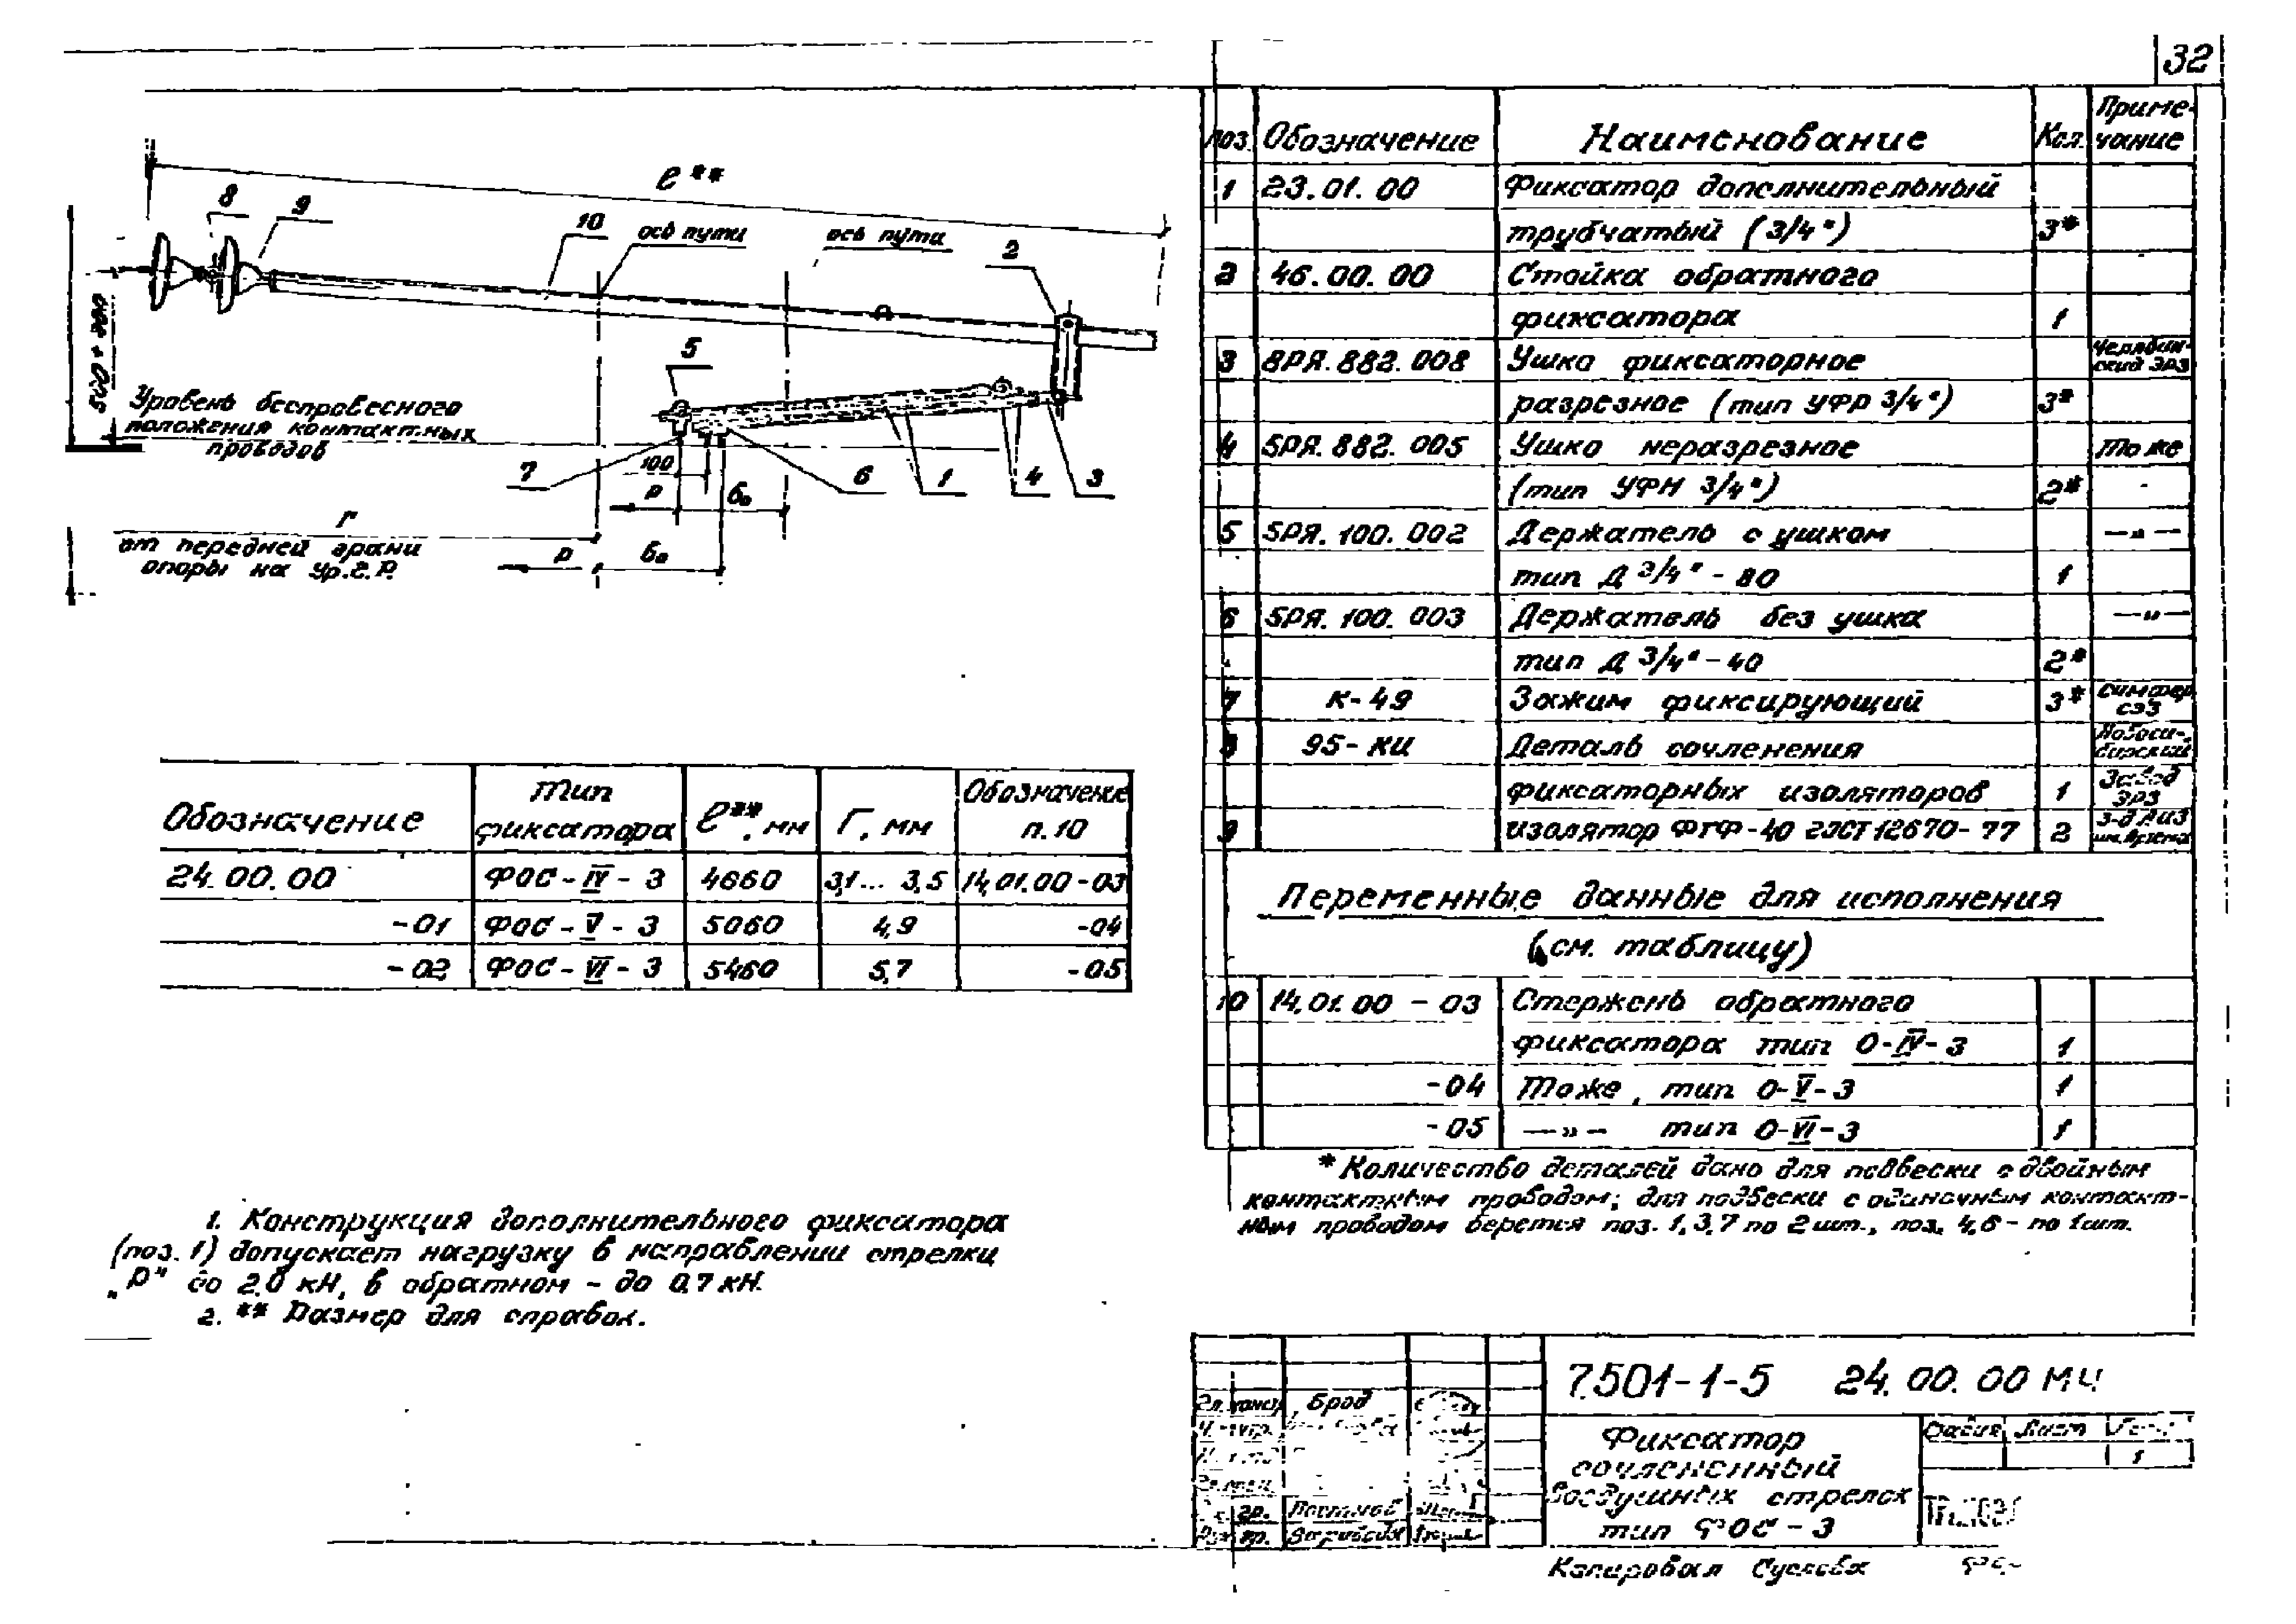 32
ℓ**
8
9
10
ось пути
ось пути
2
5
Уровень беспровесного
положения контактных
проводов
7
100
6
1
4
3
Р
Г
от передней грани
опоры на Ур.Г.Р.
Р
Обозначение
Тип
фиксатора
ℓ**, мм
Г, мм
Обозначение
п.10
24.00.00 ФОС-IV-3 4660 3,1... 3,5 14.01.00-03
-01 ФОС-V-3 5060 4,9 -04
-02 ФОС-VI-3 5460 5,7 -05
1. Конструкция дополнительного фиксатора
(поз. 1) допускает нагрузку в направлении стрелки
„Р" до 2.0 кН, в обратном - до 0.7 кН.
2. ** Размер для справок.
поз. Обозначение Наименование Кол. Приме-
чание
1 23.01.00 Фиксатор дополнительный
трубчатый (3/4") 3*
2 46.00.00 Стойка обратного
фиксатора 1
3 8РЯ.882.008 Ушко фиксаторное Челябин-
ский ЭРЗ
разрезное (тип УФР 3/4") 3*
4 5РЯ.882.005 Ушко неразрезное То же
(тип УФН 3/4") 2*
5 5РЯ.100.002 Держатель с ушком —"—
тип Д 3/4" - 80 1
6 5РЯ.100.003 Держатель без ушка —"—
тип Д 3/4" - 40 2*
7 К-49 Зажим фиксирующий 3* Симфер.
СЭЗ
8 95-КИ Деталь сочленения Новоси-
бирский
фиксаторных изоляторов 1 Завод
ЭРЗ
9 Изолятор ФТФ-40 ГОСТ 12670-77 2
Переменные данные для исполнения
(см. таблицу)
10 14.01.00 - 03 Стержень обратного
фиксатора тип О-IV-3 1
-04 То же, тип О-V-3 1
-05 —"— тип О-VI-3 1
* Количество деталей дано для подвески с двойным
контактным проводом; для подвески с одиночным контакт-
ным проводом берется поз. 1,3,7 по 2 шт., поз. 4,6 - по 1 шт.
7.501-1-5 24.00.00 МЧ
Гл. констр. Брод
Фиксатор
сочлененный
воздушных стрелок
тип ФОС-3
Стадия Лист
1
Копировал Суслова